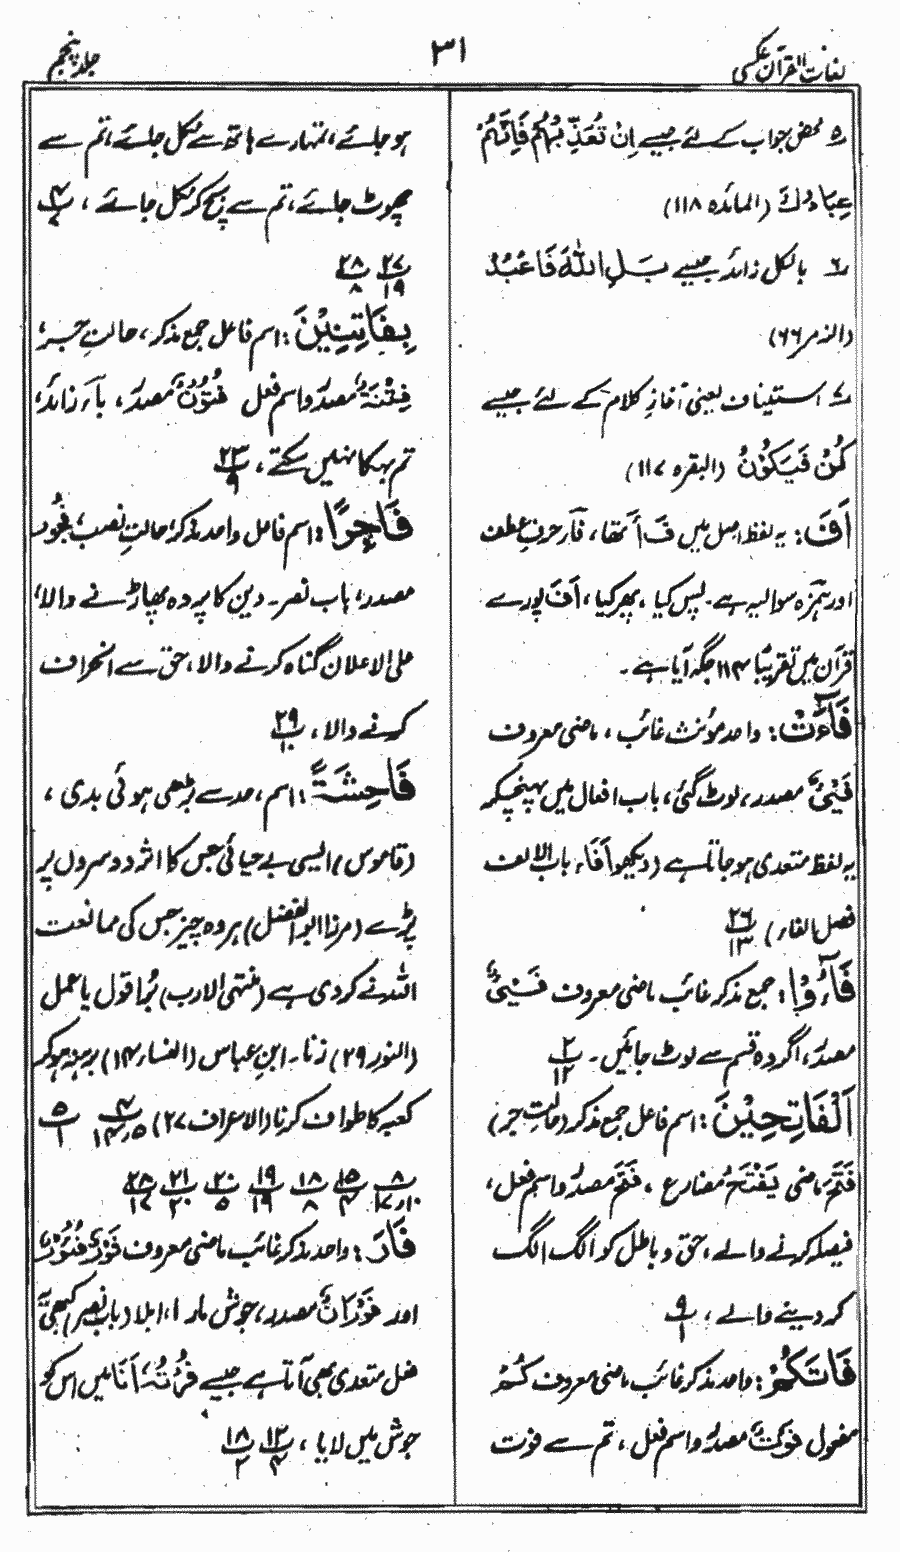 لغات القرآن عکسی
۳۱
جلد پنجم
۵۔ محض جواب کے لئے جیسے اِنْ تُعَذِّبْهُمْ فَاِنَّهُمْ
عِبَادُكَ (المائدہ ۱۱۸)
۶۔ بالکل زائد جیسے بَلِ اللّٰهَ فَاعْبُدْ
(الزمر ۶۶)
۷۔ استیناف یعنی آغازِ کلام کے لئے جیسے
كُنْ فَيَكُوْنُ (البقرہ ۱۱۷)
اَفَ: یہ لفظ اصل میں فَ أَ تھا، فآء حرفِ عطف
اور ہمزہ سوالیہ ہے۔ پس کیا، پھر کیا، اَفَ پورے
قرآن میں تقریبًا ۱۱۴ جگہ آیا ہے۔
فَآءَتْ: واحد مؤنث غائب، ماضی معروف
فَيْءٌ مصدر، لوٹ گئی، باب افعال میں پہنچکر
یہ لفظ متعدی ہو جاتا ہے (دیکھو أَفَاءَ باب الالف
فصل الفاء) ۲۶/۱۳
فَآءُوْا: جمع مذکر غائب ماضی معروف فَيْءٌ
مصدر، اگر وہ قسم سے لوٹ جائیں۔ ۲/۱۲
اَلْفَاتِحِيْنَ: اسم فاعل جمع مذکر (حالتِ جر)
فَتَحَ ماضی يَفْتَحُ مضارع، فَتْحٌ مصدر واسم فعل،
فیصلہ کرنے والے، حق و باطل کو الگ الگ
کر دینے والے، ۹/۱
فَاتَكُمْ: واحد مذکر غائب ماضی معروف كُمْ
مفعول فَوْتٌ مصدر واسم فعل، تم سے فوت
ہو جائے، تمہارے ہاتھ سے نکل جائے، تم سے
چھوٹ جائے، تم سے بچ کر نکل جائے، ۴/۷
۲۷/۱۹ ۲۸/۸
بِفَاتِنِيْنَ: اسم فاعل جمع مذکر، حالتِ جر،
فِتْنَةٌ مصدر واسم فعل فُتُوْنٌ مصدر، بآء زائد،
تم بہکا نہیں سکتے، ۲۳/۹
فَاجِرًا: اسم فاعل واحد مذکر، حالتِ نصب، فُجُور
مصدر، باب نصر۔ دین کا پردہ پھاڑنے والا،
علی الاعلان گناہ کرنے والا، حق سے انحراف
کرنے والا، ۲۹/۱۰
فَاحِشَةً: اسم، حد سے بڑھی ہوئی بدی،
(قاموس) ایسی بے حیائی جس کا اثر دوسروں پر
پڑے (مرزا ابو الفضل) ہر وہ چیز جس کی ممانعت
اللہ نے کردی ہے (منتہی الارب) بُرا قول یا عمل
(النور ۲۹) زنا۔ ابنِ عباس (النساء ۱۴) برہنہ ہوکر
کعبہ کا طواف کرنا (الاعراف ۲۷) ۴/۵،۱۴ ۵/۱
۸/۱۰،۱۷ ۱۵/۴ ۱۸/۸ ۱۹/۱۹ ۲۰/۵ ۲۱/۲۰ ۲۵/۱۷
فَارَ: واحد مذکر غائب ماضی معروف فَوْرٌ فُئُوْرٌ
اور فَوَرَانٌ مصدر، جوش مارا، ابلا (باب نصر) کبھی یہ
فعل متعدی بھی آتا ہے جیسے فُرْتُهٗ اَنَا میں اس کو
جوش میں لایا، ۱۲/۴ ۱۸/۲